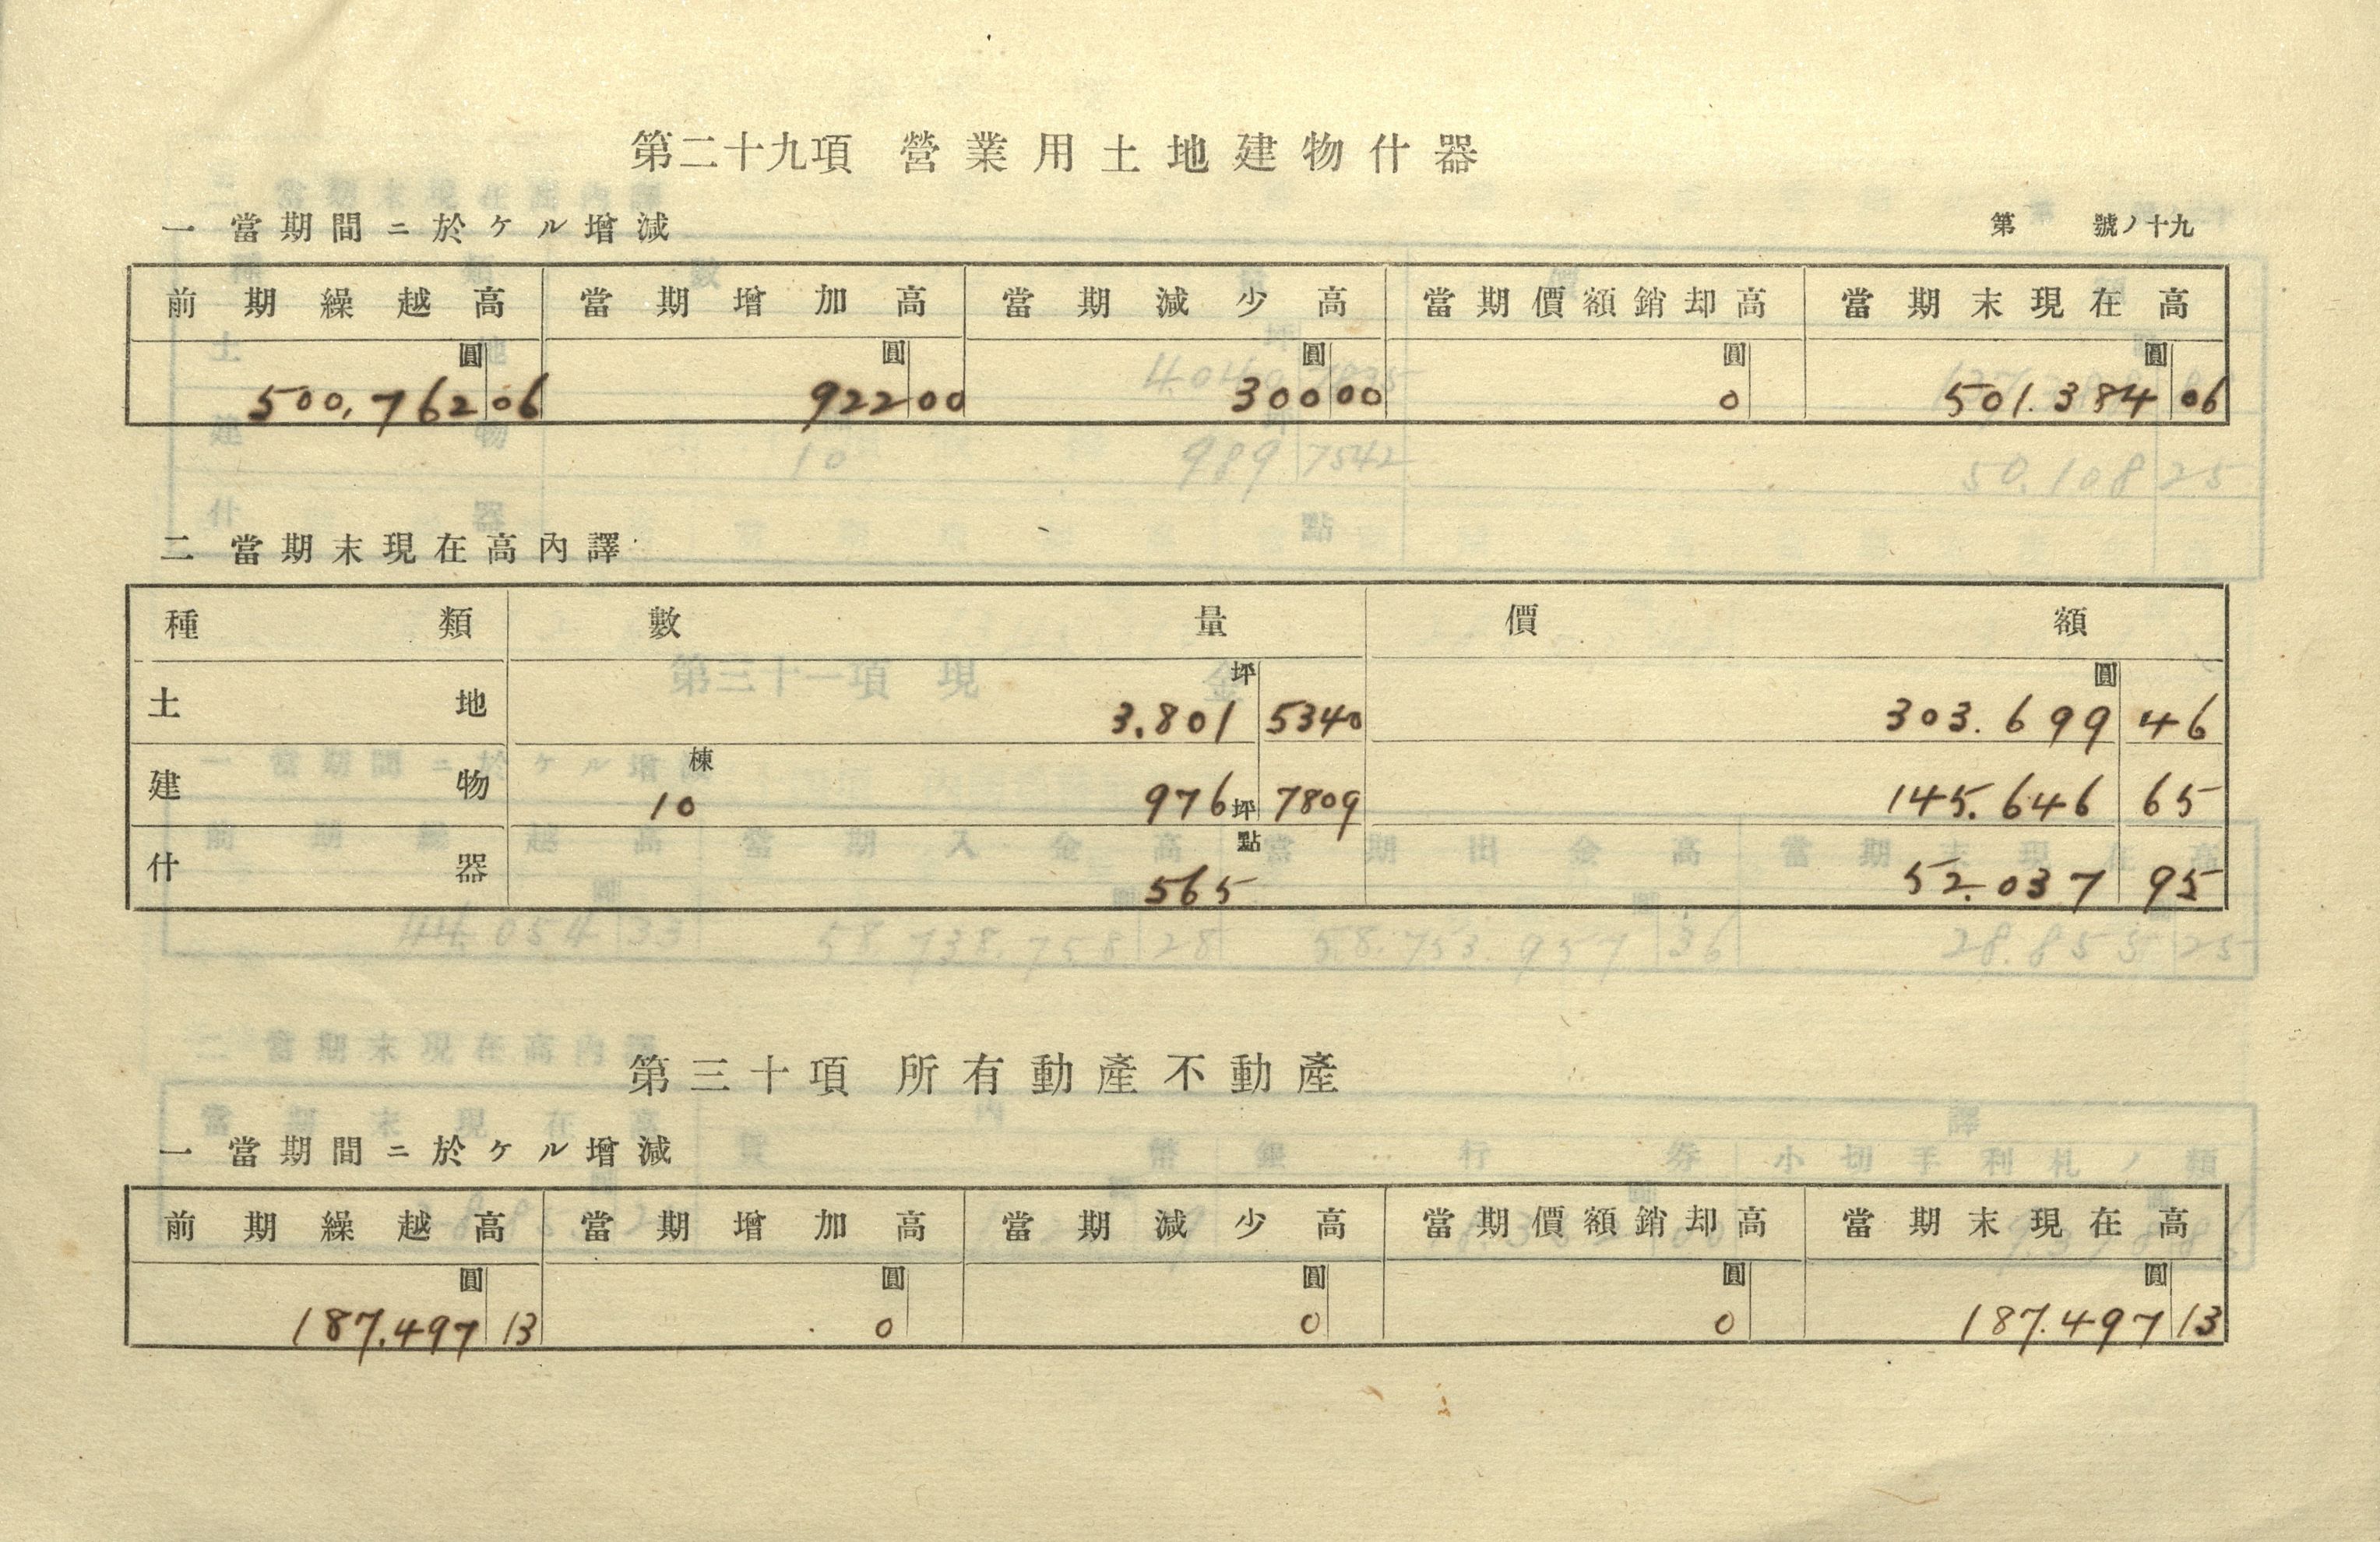 第二十九項 營業用土地建物什器
一 當期間ニ於ケル增減 第 號ノ十九
前期繰越高 當期增加高 當期減少高 當期價額銷却高 當期末現在高
圓 圓 圓 圓 圓
500,762 06 922 00 300 00 0 501.384 06
二 當期末現在高內譯
種類 數量 價額
坪 圓
土地 3.801 5340 303.699 46
棟
建物 10 976坪 7809 145.646 65
點
什器 565 52.037 95
第三十項 所有動產不動產
一 當期間ニ於ケル增減
前期繰越高 當期增加高 當期減少高 當期價額銷却高 當期末現在高
圓 圓 圓 圓 圓
187.497 13 0 0 0 187.497 13